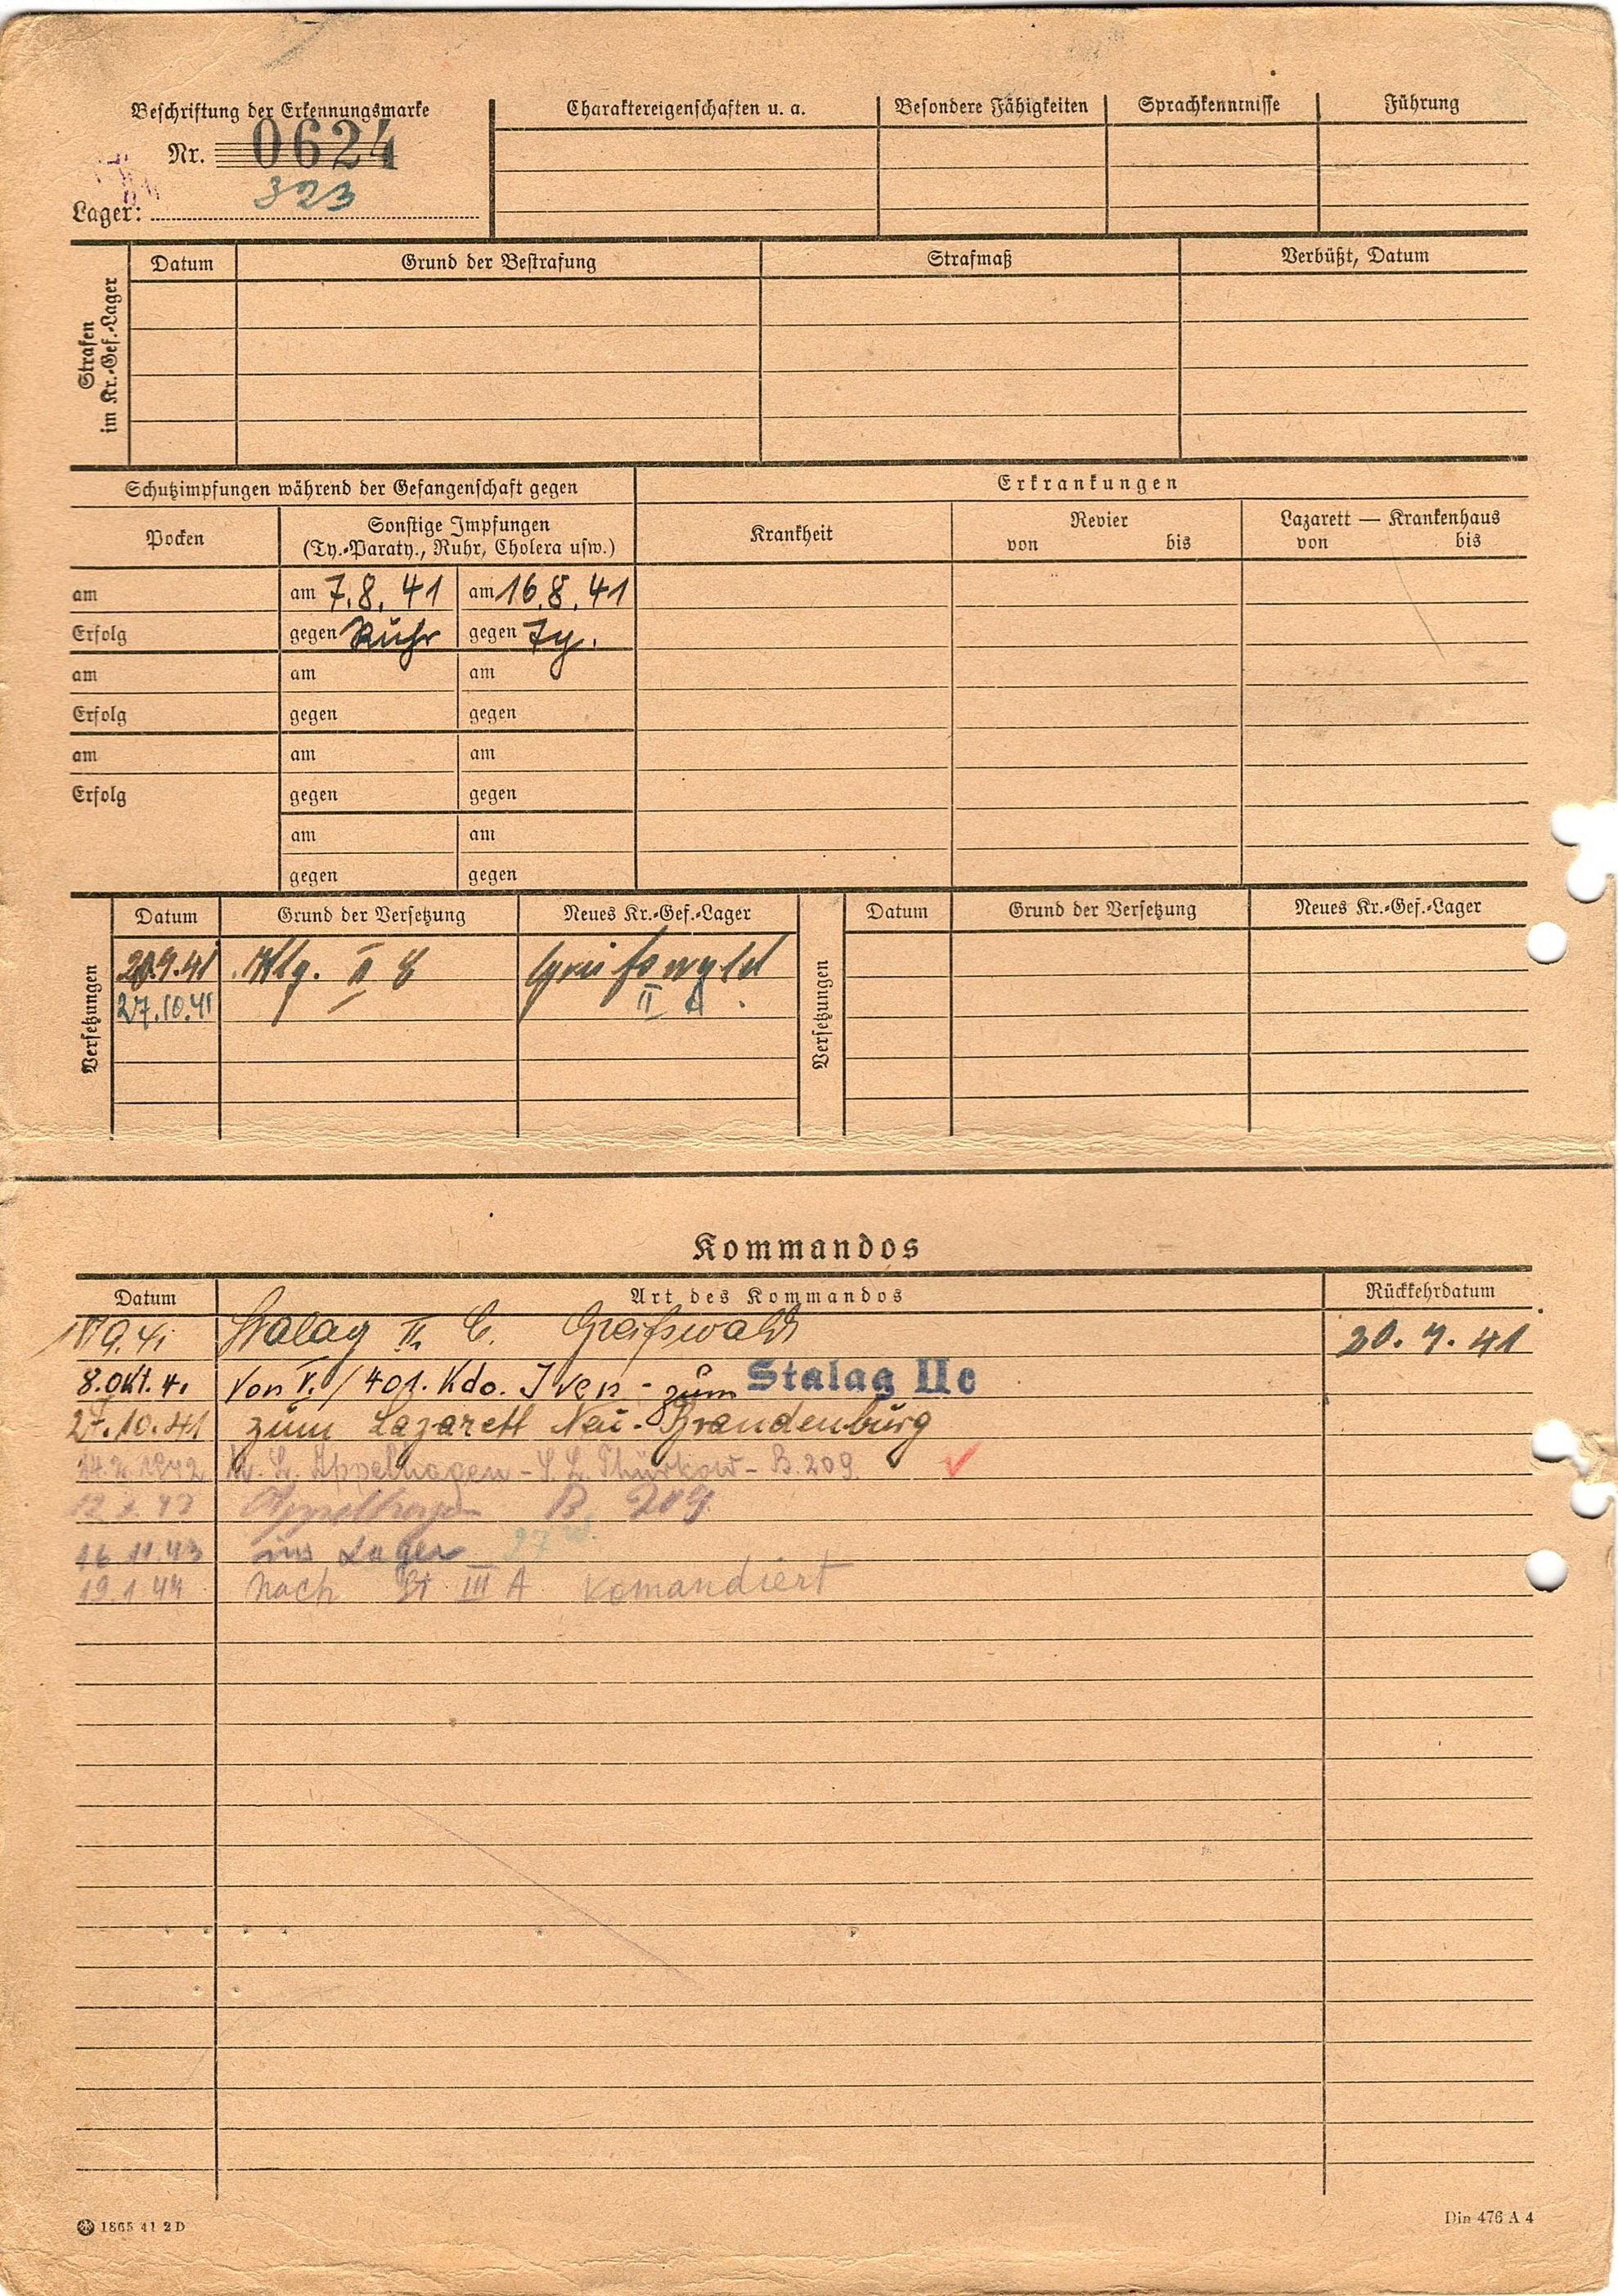 Beschriftung der Erkennungsmarke
Nr. 0624
323
Lager:
Charaktereigenschaften u. a.
Besondere Fähigkeiten
Sprachkenntnisse
Führung
Strafen
im Kr.-Gef.-Lager
Datum
Grund der Bestrafung
Strafmaß
Verbüßt, Datum
Schutzimpfungen während der Gefangenschaft gegen
Erkrankungen
Pocken
Sonstige Impfungen
(Ty.-Paraty., Ruhr, Cholera usw.)
Krankheit
Revier
von bis
Lazarett — Krankenhaus
von bis
am am 7.8.41 am 16.8.41
Erfolg gegen Ruhr gegen Ty.
am am am
Erfolg gegen gegen
am am am
Erfolg gegen gegen
am am
gegen gegen
Versetzungen
Datum Grund der Versetzung Neues Kr.-Gef.-Lager
20.9.41 II C Greifswald
27.10.41 II A
Versetzungen
Datum Grund der Versetzung Neues Kr.-Gef.-Lager
Kommandos
Datum Art des Kommandos Rückkehrdatum
9.41 Stalag II C. Greifswald 20.9.41
8.Okt.41 von V./401. Kdo. Iven - zum Stalag IIc
27.10.41 zum Lazarett Neu-Brandenburg
1942 Appelhagen - Thürkow - B. 209
Appelhagen B 209
16.11.43 ins Lager
19.1.44 Nach St III A Komandiert
1865 41 2 D
Din 476 A 4